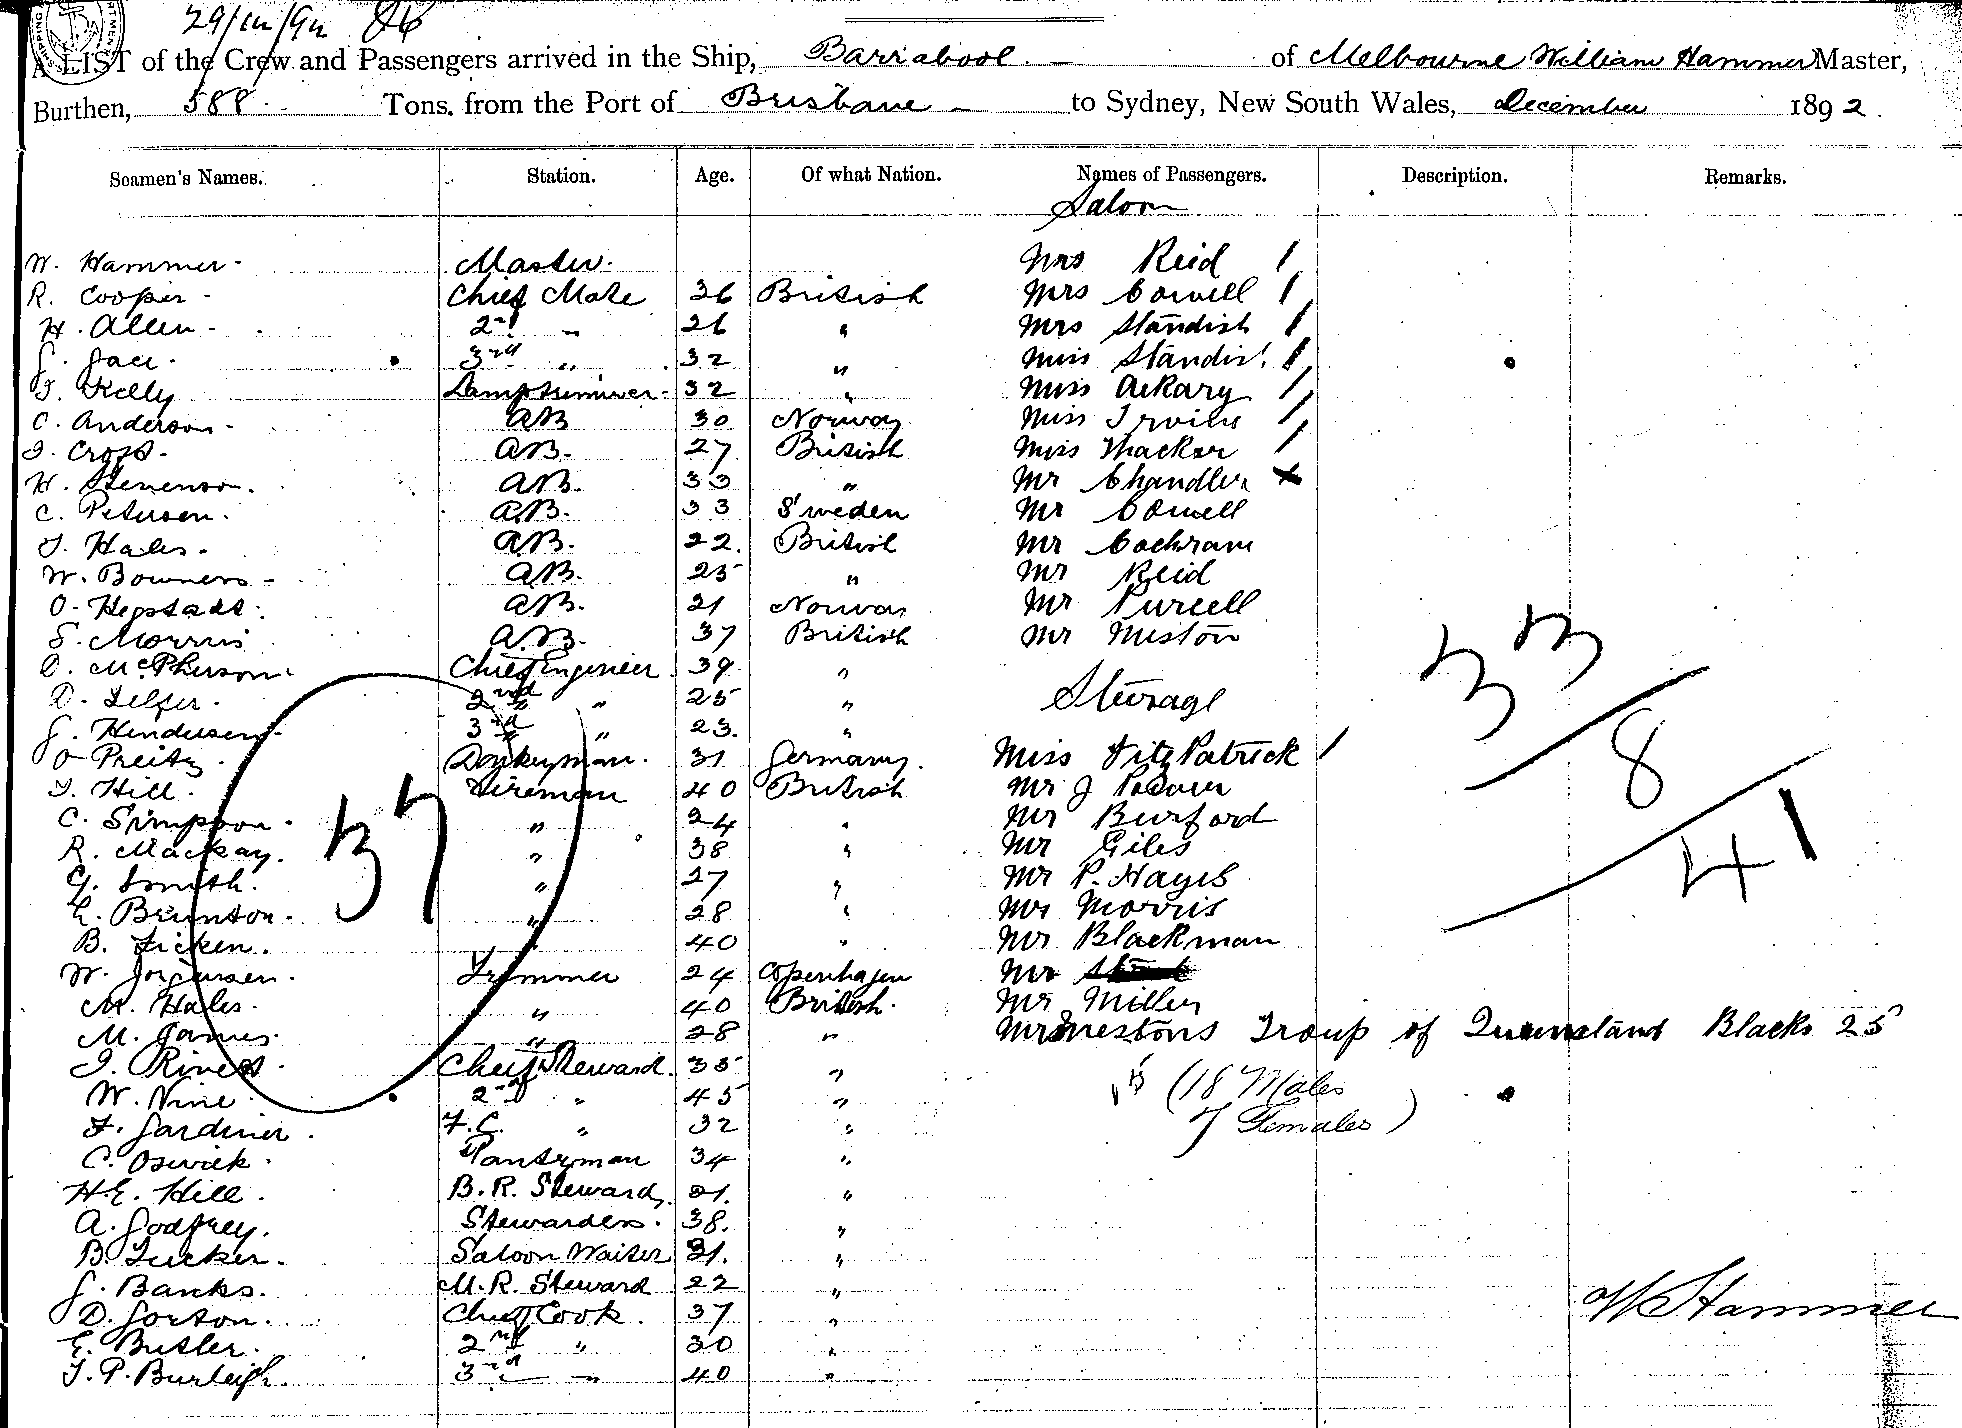 29/12/92
A LIST of the Crew and Passengers arrived in the Ship, Barrabool of Melbourne William Hammer Master,
Burthen, 588 Tons, from the Port of Brisbane to Sydney, New South Wales, December 1892.
Seamen's Names. Station. Age. Of what Nation. Names of Passengers. Description. Remarks.
Saloon
W. Hammer Master Mrs Reid 1
R. Cooper Chief Mate 36 British Mrs Cowell 1
H. Allen 2nd " 26 " Mrs Standish 1
3rd " 32 " Miss Standish 1
Kelly Lamptrimmer 32 " Miss Ackary 1
C. Anderson AB 30 Norway Miss Irvine 1
Croft AB. 27 British Miss Thacker 1
H. Stevenson. AB. 33 " Mr Chandler x
C. Petersen. AB. 33 Sweden Mr Cowell
Hales. AB. 22. British Mr Cochrane
W. Bowners AB. 25 " Mr Reid
O. Hepstadt AB. 21 Norway Mr Purcell
S. Morris AB. 37 British Mr Miston
D. McPherson Chief Engineer 39 "
D. Telfer. 2nd " 25 " Sterage
Henderson 3rd " 23. "
O Preitz Donkeyman. 31 Germany. Miss FitzPatrick 1
Hill. Fireman 40 British Mr J
C. Simpson " 24 " Mr Burford
R. Mackay. " 38 " Mr Giles
G. Smith. " 27 " Mr P. Hayes
Brunton. " 28 " Mr Morris
B. Ficken. 40 " Mr Blackman
W. Jorgensen. Trimmer 24 Copenhagen Mr
M. Hales. " 40 British. Mr Miller
M. James. " 28 " Mr Mestons Troup of Queensland Blacks 25
Chief Steward. 35 "
W. Vine 2nd " 45 " (18 Males
F. Gardiner. F.C. " 32 " 7 Females)
C. Oswick. Pantryman 34 "
H.E. Hill. B.R. Steward, 21. "
A. Godfrey. Stewardess. 38. "
B. Tucker. Saloon Waiter 31. "
J. Banks. M.R. Steward 22 "
D. Gorton. Chief Cook. 37 "
E. Butler. 2nd " 30 "
T. P. Burleigh. 3rd " 40 "
37
33
8
41
W Hammer